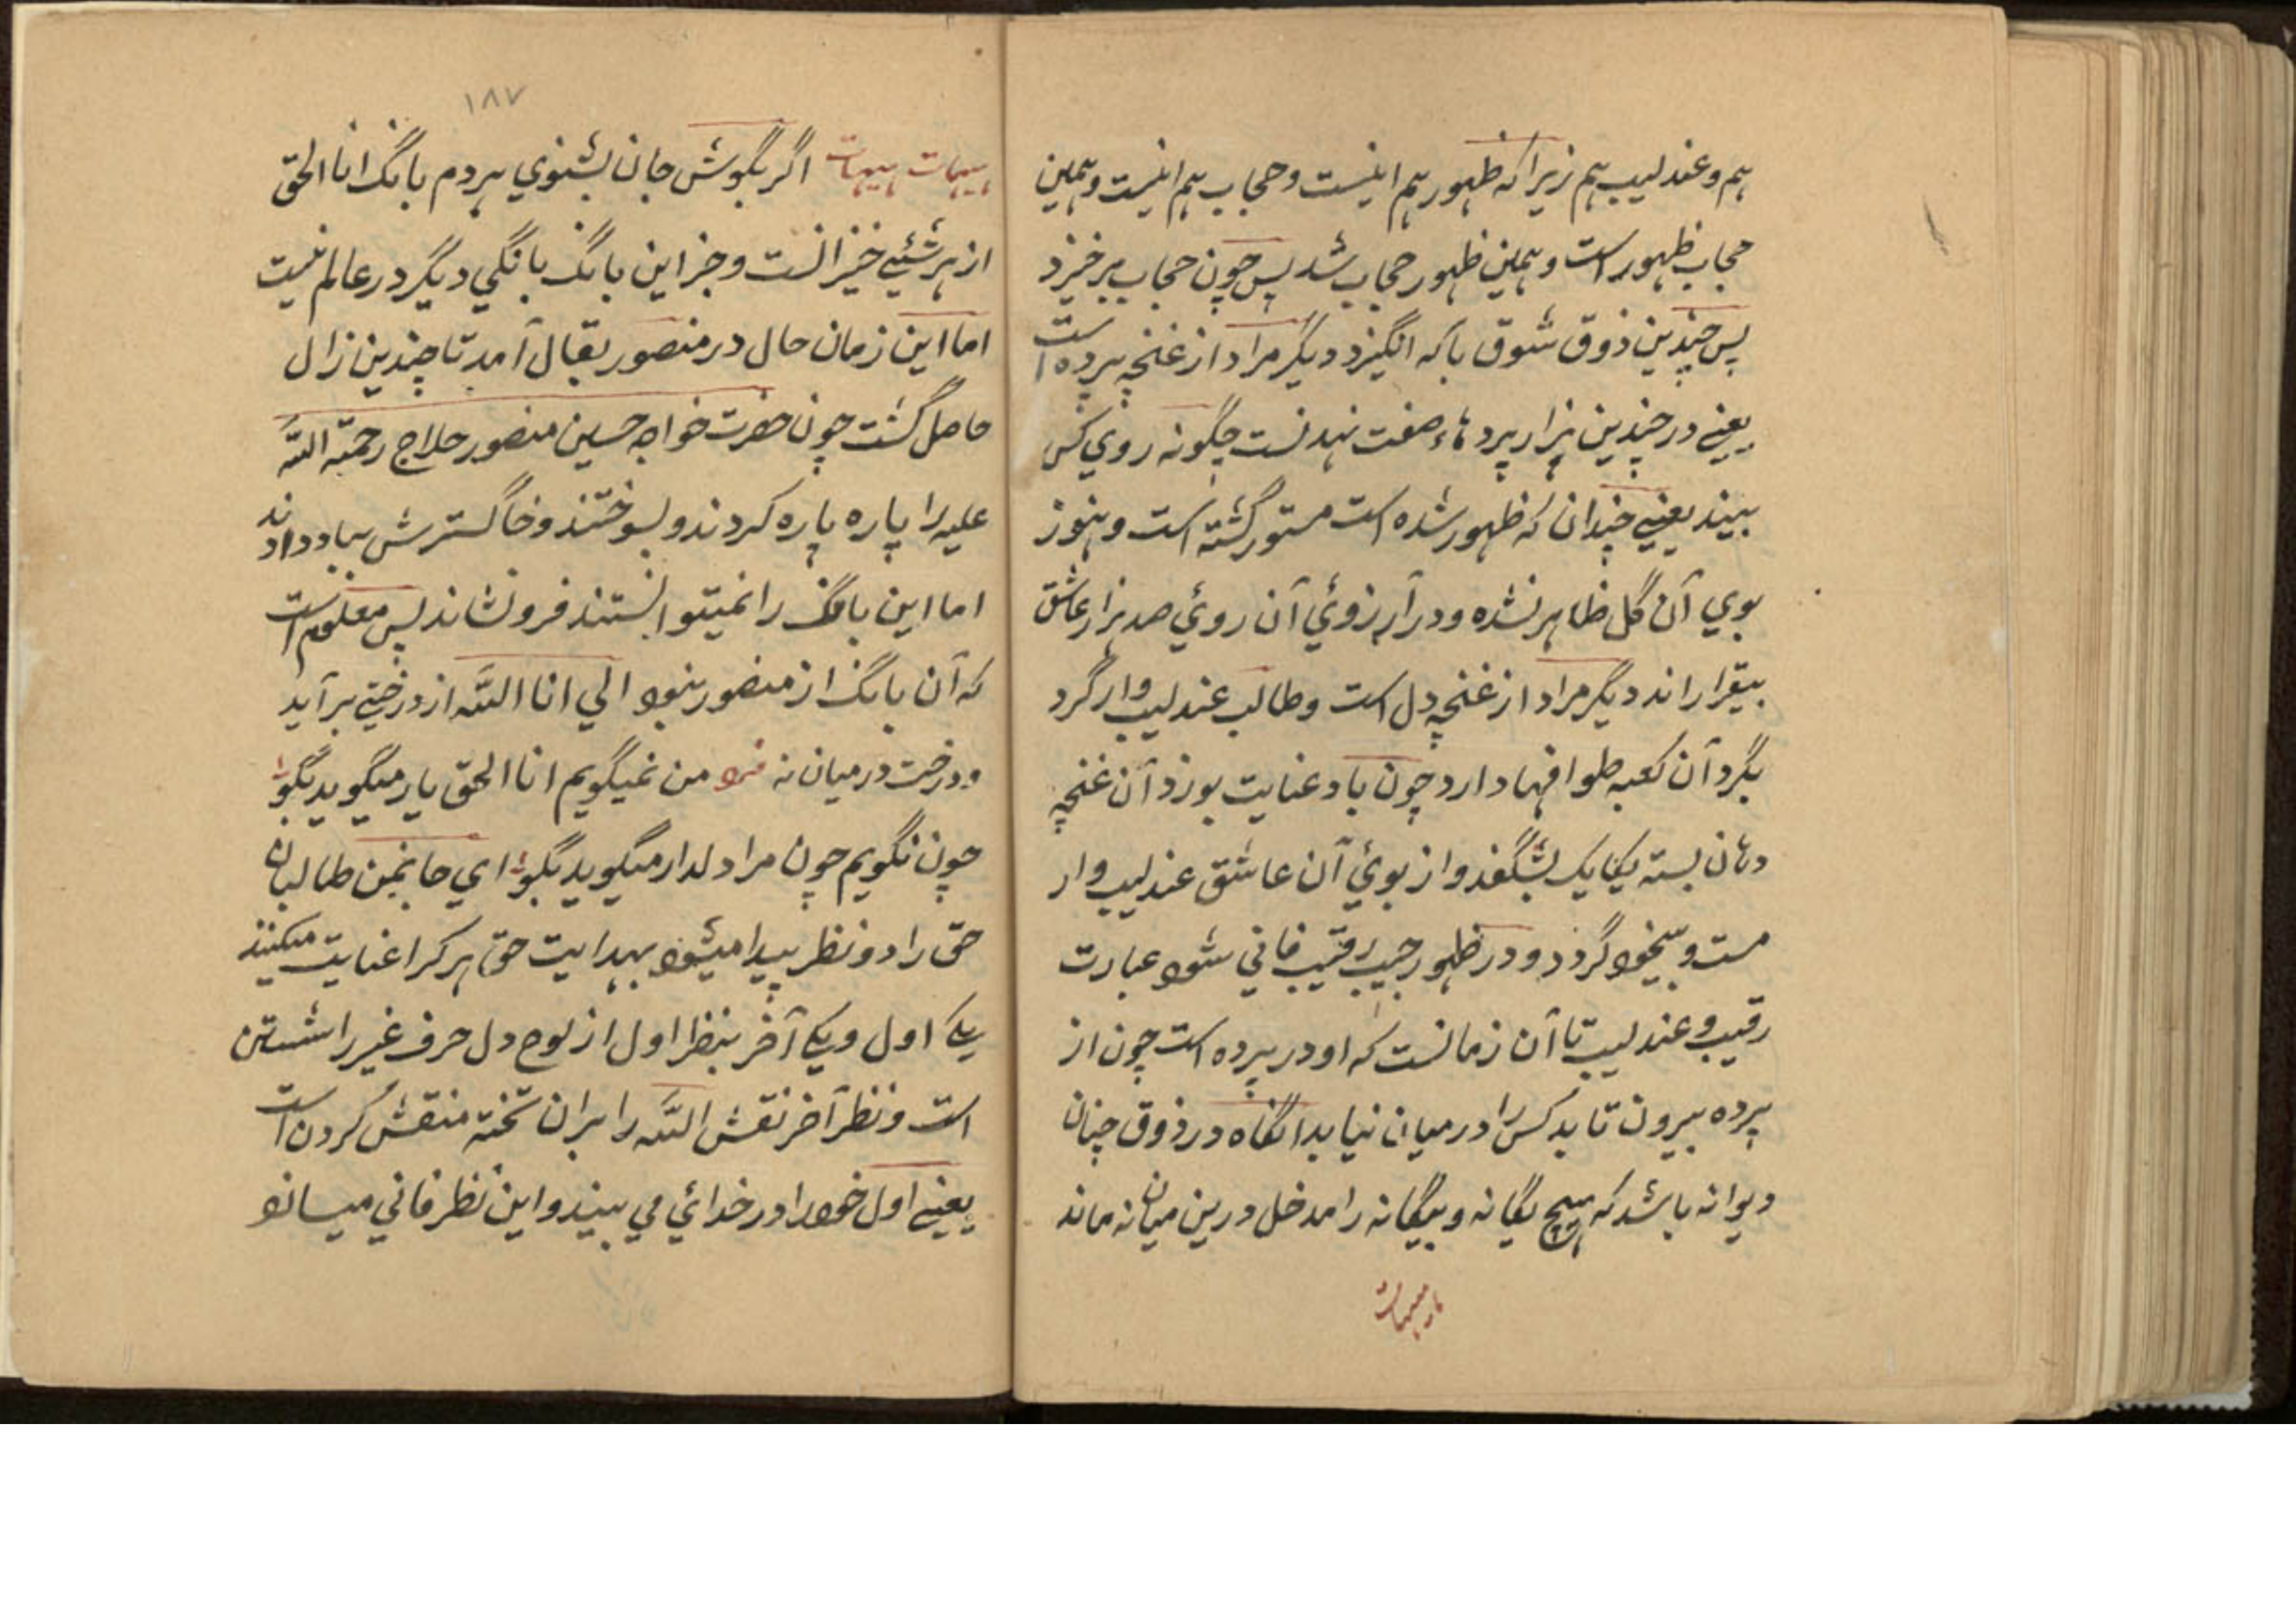 هم و عندلیب هم زیرا که ظهور هم اینست و حجاب هم اینست و همین
حجاب ظهور است و همین ظهور حجاب شد پس چون حجاب برخیزد
پس چندین ذوق شوق با که انگیزد دیگر مراد از غنچه پرده است
یعنے در چندین هزار پردهاء صفت چگونه روي کس
بیند یعنے چندان که ظهور شده است مستور گشته است و هنوز
بوي آن گل ظاهر نشده و در آرزوئي آن روئي صد هزار عاشق
بیقرار اند دیگر مراد از غنچه دل است و طالب عندلیب وار گرد
بگرد آن کعبه طوافها دارد چون باد عنایت بوزد آن غنچه
دهان بسته یکایک بشگفد و از بوئي آن عاشق عندلیب وار
مست و بیخود گردد و در ظهور حبیب رقیب فاني شود عبارت
رقیب و عندلیب تا آن زمانست که او در پرده است چون از
پرده بیرون تابد کس را در میان نیابد انگاه در ذوق چنان
دیوانه باشد که هیچ یگانه و بیگانه را مدخل درین میان نه ماند
هیهات
۱۸۷
هیهات هیهات اگر بگوش جان بشنوي هردم بانگ انا الحق
از هر شئیے خیزانست و جز این بانگ بانگي دیگر در عالم نیست
اما این زمان حال در منصور بقال آمد تا چندین زال
حاصل گشت چون حضرت خواجه حسین منصور حلاج رحمة الله
علیه را پاره پاره کردند و بسوختند و خاگسترش بباد دادند
اما این بانگ را نمیتوانستند فرو نشاند پس معلوم است
که آن بانگ از منصور نبود اني انا الله از درختے برآید
و درخت درمیان نه فرد من نمیگویم انا الحق یار میگوید بگو
چون نگویم چون مرا دلدار میگوید بگو اي جانمن طالبان
حق را دو نظر پیدا میشود بهدایت حق هر کرا عنایت میکنند
یکے اول و یکے آخر بنظر اول از لوح دل حرف غیر را شستن
است و نظر آخر نقش الله را بران تخته منقش کردن است
یعنے اول خود را در خدائي مي بیند و این نظر فاني میسازد